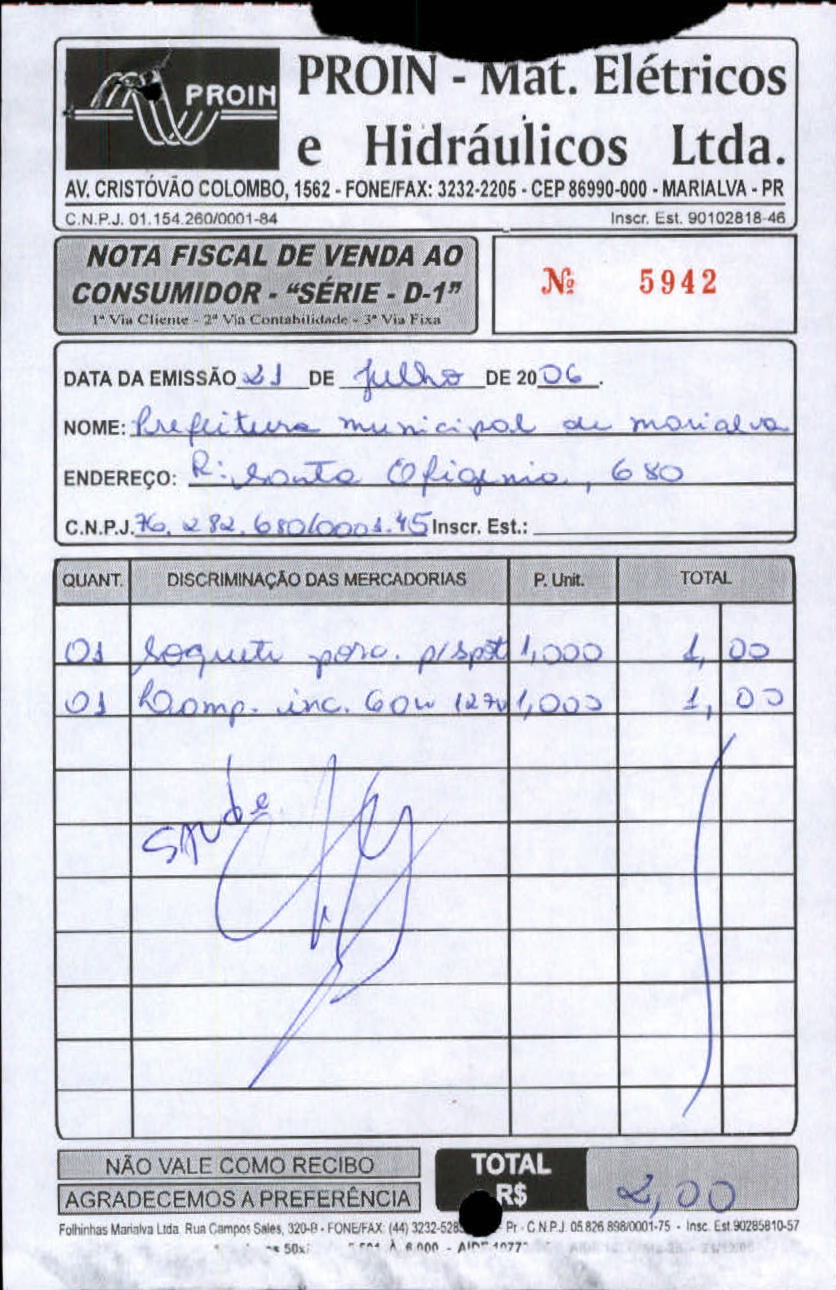 PROIN
PROIN - Mat. Elétricos
e Hidráulicos Ltda.
AV. CRISTÓVÃO COLOMBO, 1562 - FONE/FAX: 3232-2205 - CEP 86990-000 - MARIALVA - PR
C.N.P.J. 01.154.260/0001-84 Inscr. Est. 90102818-46
NOTA FISCAL DE VENDA AO
CONSUMIDOR - "SÉRIE - D-1"
1ª Via Cliente - 2ª Via Contabilidade - 3ª Via Fixa
Nº 5942
DATA DA EMISSÃO 21 DE Julho DE 2006.
NOME: Prefeitura municipal de marialva
ENDEREÇO: R: Santa Efigenia, 680
C.N.P.J. 76.282.680/0001.45 Inscr. Est.:
QUANT. DISCRIMINAÇÃO DAS MERCADORIAS P. Unit. TOTAL
01 Soquete porc. p/spot 1,000 1,00
01 Lamp. inc. 60w 127v 1,000 1,00
SAUDE
NÃO VALE COMO RECIBO
AGRADECEMOS A PREFERÊNCIA
TOTAL
R$ 2,00
Folhinhas Marialva Ltda. Rua Campos Sales, 320-B - FONE/FAX: (44) 3232-528 Pr - C.N.P.J. 05.826.898/0001-75 - Insc. Est. 90285810-57
50x À 6.000 - AIDF